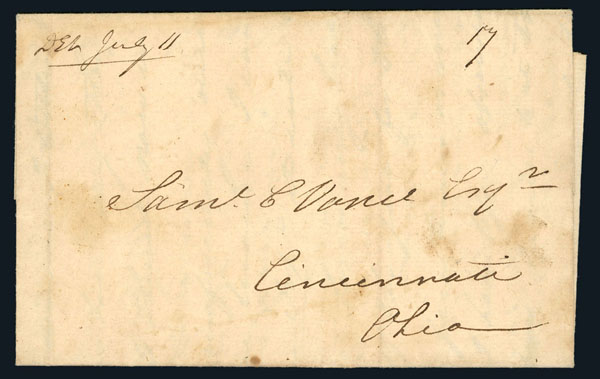 Det July 11
17
Saml. C Vance Esqr
Cincinnati
Ohio